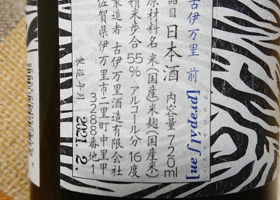 古伊万里 前
[ˈɪʌe ʃɪvdeɹdɪ]
品目 日本酒 内容量 720ml
原材料名 米(国産)米麹(国産米)
精米歩合 55% アルコール分 16度
製造者 古伊万里酒造有限会社
佐賀県伊万里市二里町中里甲
3288番地1
製造年月
2021.2.